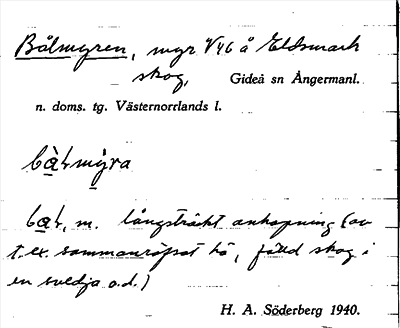 Bålmyren, myr V46 å Eldsmark
skog, Gideå sn Ångermanl.
n. doms. tg. Västernorrlands l.
m. långsträckt anhopning (av
t.ex. sammanräfsat hö, fälld skog i
en svedja o.d.)
H. A. Söderberg 1940.